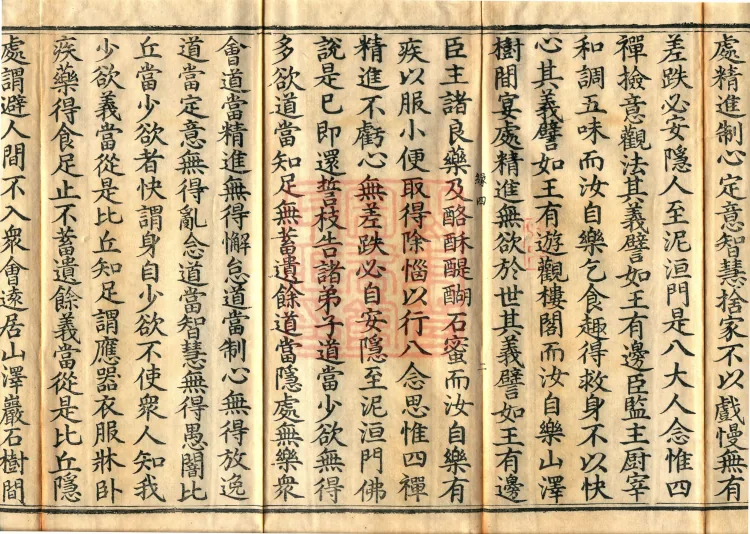 處精進制心定意智慧捨家不以戲慢無有
差跌必安隱人至泥洹門是八大人念惟四
禪撿意觀法其義譬如王有邊臣監主厨宰
和調五味而汝自樂乞食趣得救身不以快
心其義譬如王有遊觀樓閣而汝自樂山澤
樹間宴處精進無欲於世其義譬如王有邊
臣主諸良藥及酪酥醍醐石蜜而汝自樂有
疾以服小便取得除惱以行八念思惟四禪
精進不虧心無差跌必自安隱至泥洹門佛
說是已即還誓枝告諸弟子道當少欲無得
多欲道當知足無蓄遺餘道當隱處無樂衆
會道當精進無得懈怠道當制心無得放逸
道當定意無得亂念道當智慧無得愚闇比
丘當少欲者快謂身自少欲不使衆人知我
少欲義當從是比丘知足謂應器衣服牀卧
疾藥得食足止不蓄遺餘義當從是比丘隱
處謂避人間不入衆會遠居山澤巖石樹間